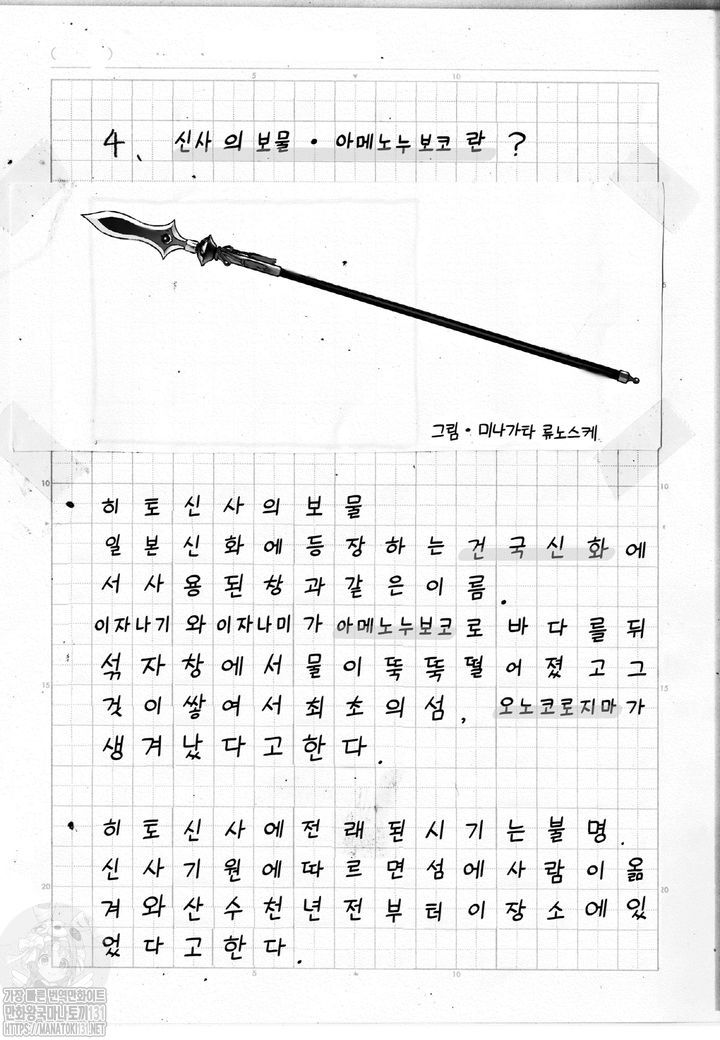 4、 신사의보물・아메노누보코란?
그림・미나가타 류노스케
• 히토신사의보물
일본신화에등장하는건국신화에
서사용된창과같은이름.
이자나기와이자나미가아메노누보코로바다를뒤
섞자창에서물이뚝뚝떨어졌고그
것이쌓여서최초의섬, 오노코로지마가
생겨났다고한다.
• 히토신사에전래된시기는불명.
신사기원에따르면섬에사람이옮
겨와산수천년전부터이장소에있
었다고한다.
5
10
5
10
10
15
15
20
20
5
10
가장 빠른 번역만화이트
만화왕국마나토끼131
HTTPS://MANATOKI131.NET